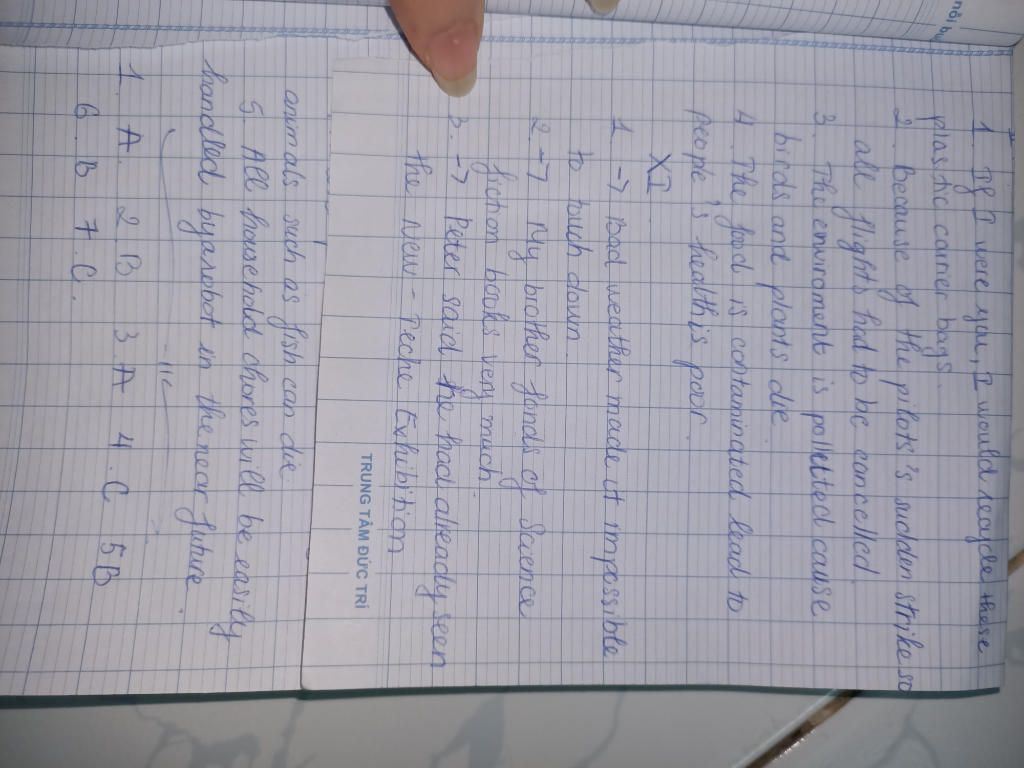 nói, b
1. If I were you, I would recycle these
plastic carrier bags.
2. Because of the pilots's sudden strike so
all flights had to be cancelled
3. The environment is polluted cause
birds and plants die
4. The food is contaminated lead to
people's health is poor.
XI
1. → Bad weather made it impossible
to touch down.
2. → My brother fonds of Science
fiction books very much
3. → Peter said he had already seen
the New-Teche Exhibition
TRUNG TÂM ĐỨC TRÍ
animals such as fish can die.
5. All household chores will be easily
handled by a robot in the near future.
1. A 2 B 3. A 4. C 5 B
6. B 7. C.